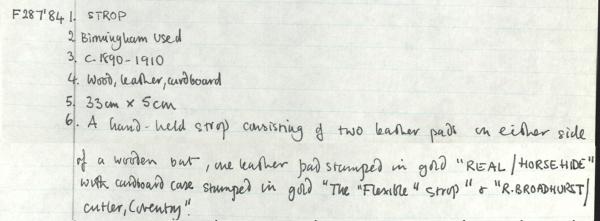 F287'84 1. STROP
2 Birmingham Used
3. c.1890-1910
4. Wood, leather, cardboard
5. 33cm x 5cm
6. A hand-held strop consisting of two leather pads on either side
of a wooden bat, one leather pad stamped in gold "REAL/HORSEHIDE"
with cardboard case stamped in gold "The "Flexible" Strop" & "R.BROADHURST/
cutler, Coventry".